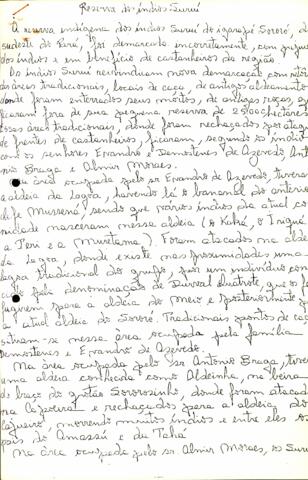 Reserva dos índios Suruí
A reserva indígena dos índios Suruí do igarapé Sororó, do
sudeste do Pará, foi demarcada incorretamente, com prejuízo
dos índios e em benefício de castanheiros da região
Os índios Suruí reivindicam nova demarcação com
das áreas tradicionais, locais de caça, de antigos aldeamentos
onde foram enterrados seus mortos, de antigas roças, que
ficaram fora de sua pequena reserva de hectares
essas áreas tradicionais, donde foram rechaçados por ataques
de frentes de castanheiros, ficaram, segundo os índios
com os senhores Evandro e Demóstenes de Azevedo, Antô
nio Braga e Almir Moraes.
Na área ocupada pelo sr Evandro de Azevedo, tiveram
a aldeia da lagoa, havendo lá o bananal do anterior
chefe Mussenai, sendo que vários índios da atual co
munidade nasceram nessa aldeia (o Kahá, o
a Peri e a Muretama). Foram atacados na aldeia
da lagoa, donde existe nas proximidades uma
tradicional do grupo, por um indivíduo conhe
cido pela denominação de Durval
fugirem para a aldeia do meio e posteriormente p/
a atual aldeia do Sororó. Tradicionais pontos de caça
situam-se nessa área ocupada pela família
Demóstenes e Evandro de Azevedo.
Na área ocupada pelo sr Antônio Braga, tiveram
uma aldeia conhecida como Aldeinha, na beira
do braço do grotão Sororozinho, donde foram atacados
na e rechaçados para a aldeia do
morrendo muitos índios e entre eles os
pais do Amassú e da Tahá
Na área ocupada pelo sr. Almir Moraes, os Suruí